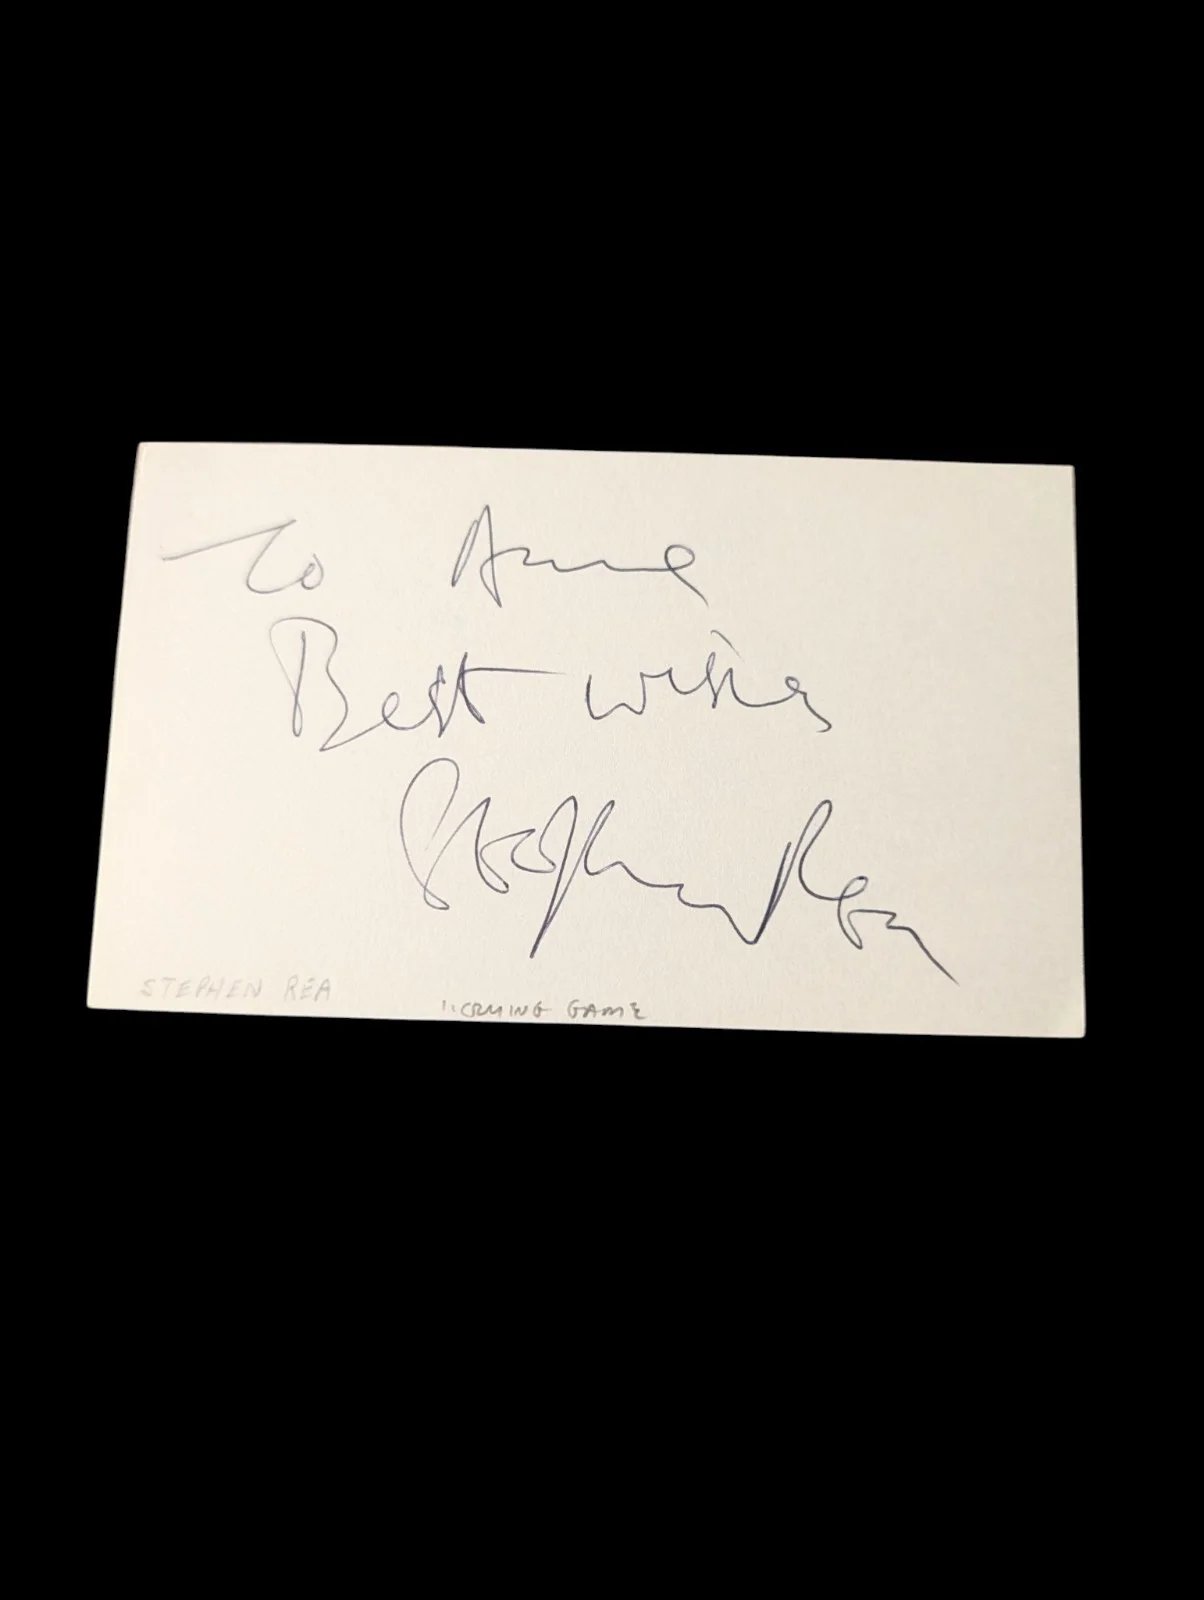 To Anne
Best wishes
Stephen Rea
STEPHEN REA
"CRYING GAME